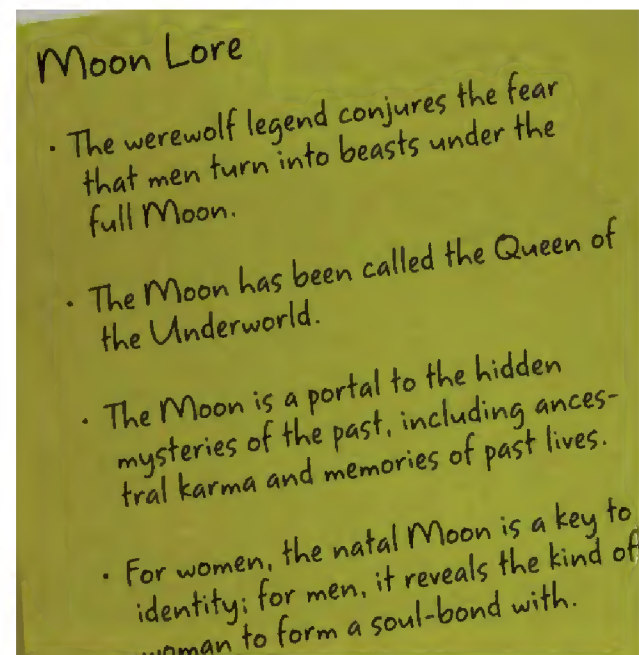 Moon Lore
· The werewolf legend conjures the fear
that men turn into beasts under the
full Moon.
· The Moon has been called the Queen of
the Underworld.
· The Moon is a portal to the hidden
mysteries of the past, including ances-
tral karma and memories of past lives.
· For women, the natal Moon is a key to
identity; for men, it reveals the kind of
woman to form a soul-bond with.